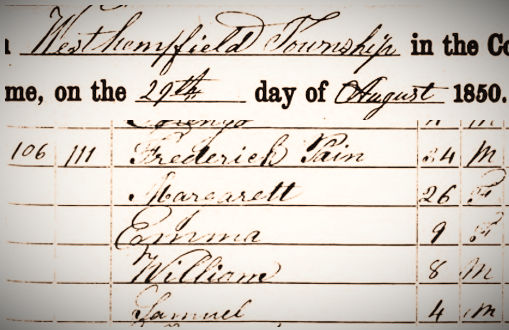 Westhempfield Township in the Co
me, on the 29th day of August 1850.
Lorenzo 11 M
106 111 Frederick Pain 24 M
Margarett 26 F
Emma 9 F
William 8 M
Samuel 4 M